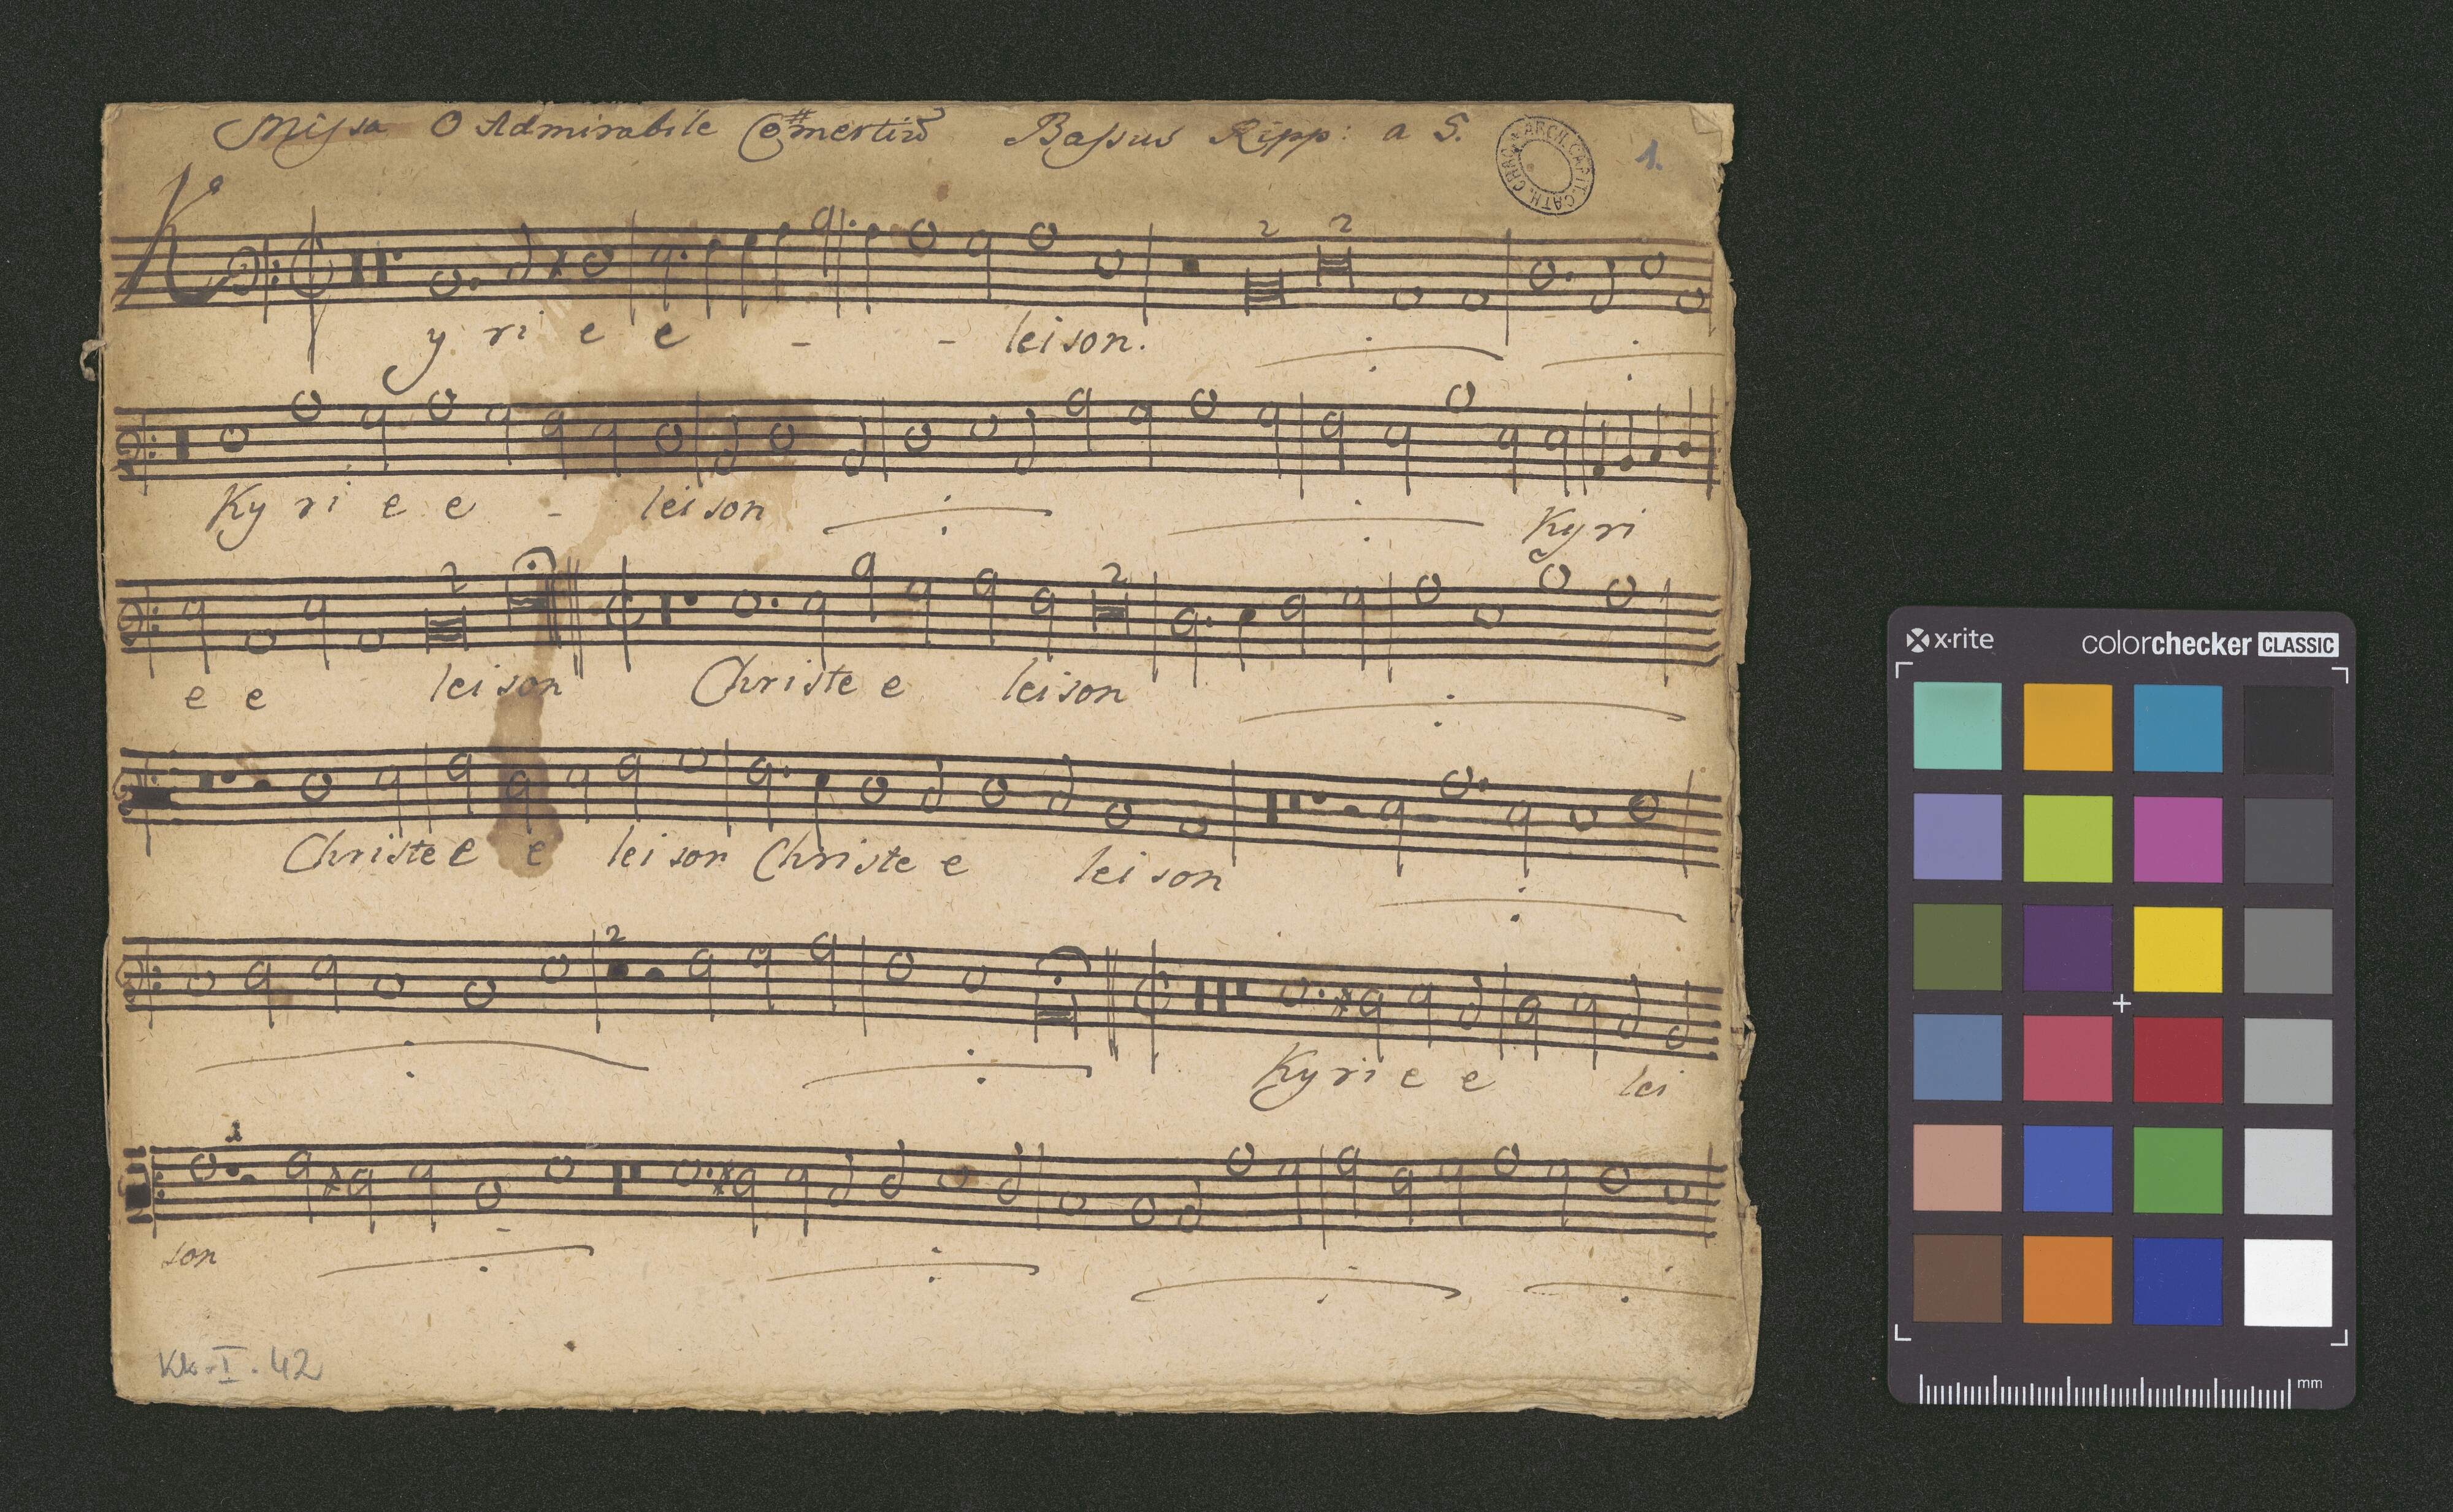 Missa O Admirabile Com̃ertiũ Bassus Ripp: a 5.
ARCH. CAPIT. CATH. CRAC.
1.
Kyrie e - - leison.
2 2
Kyrie e - leison Kyri
e e leison Christe e leison
2 2
Christe e e leison Christe e leison
2
Kyrie e lei
son
Kk. I. 42
x·rite colorchecker CLASSIC
mm